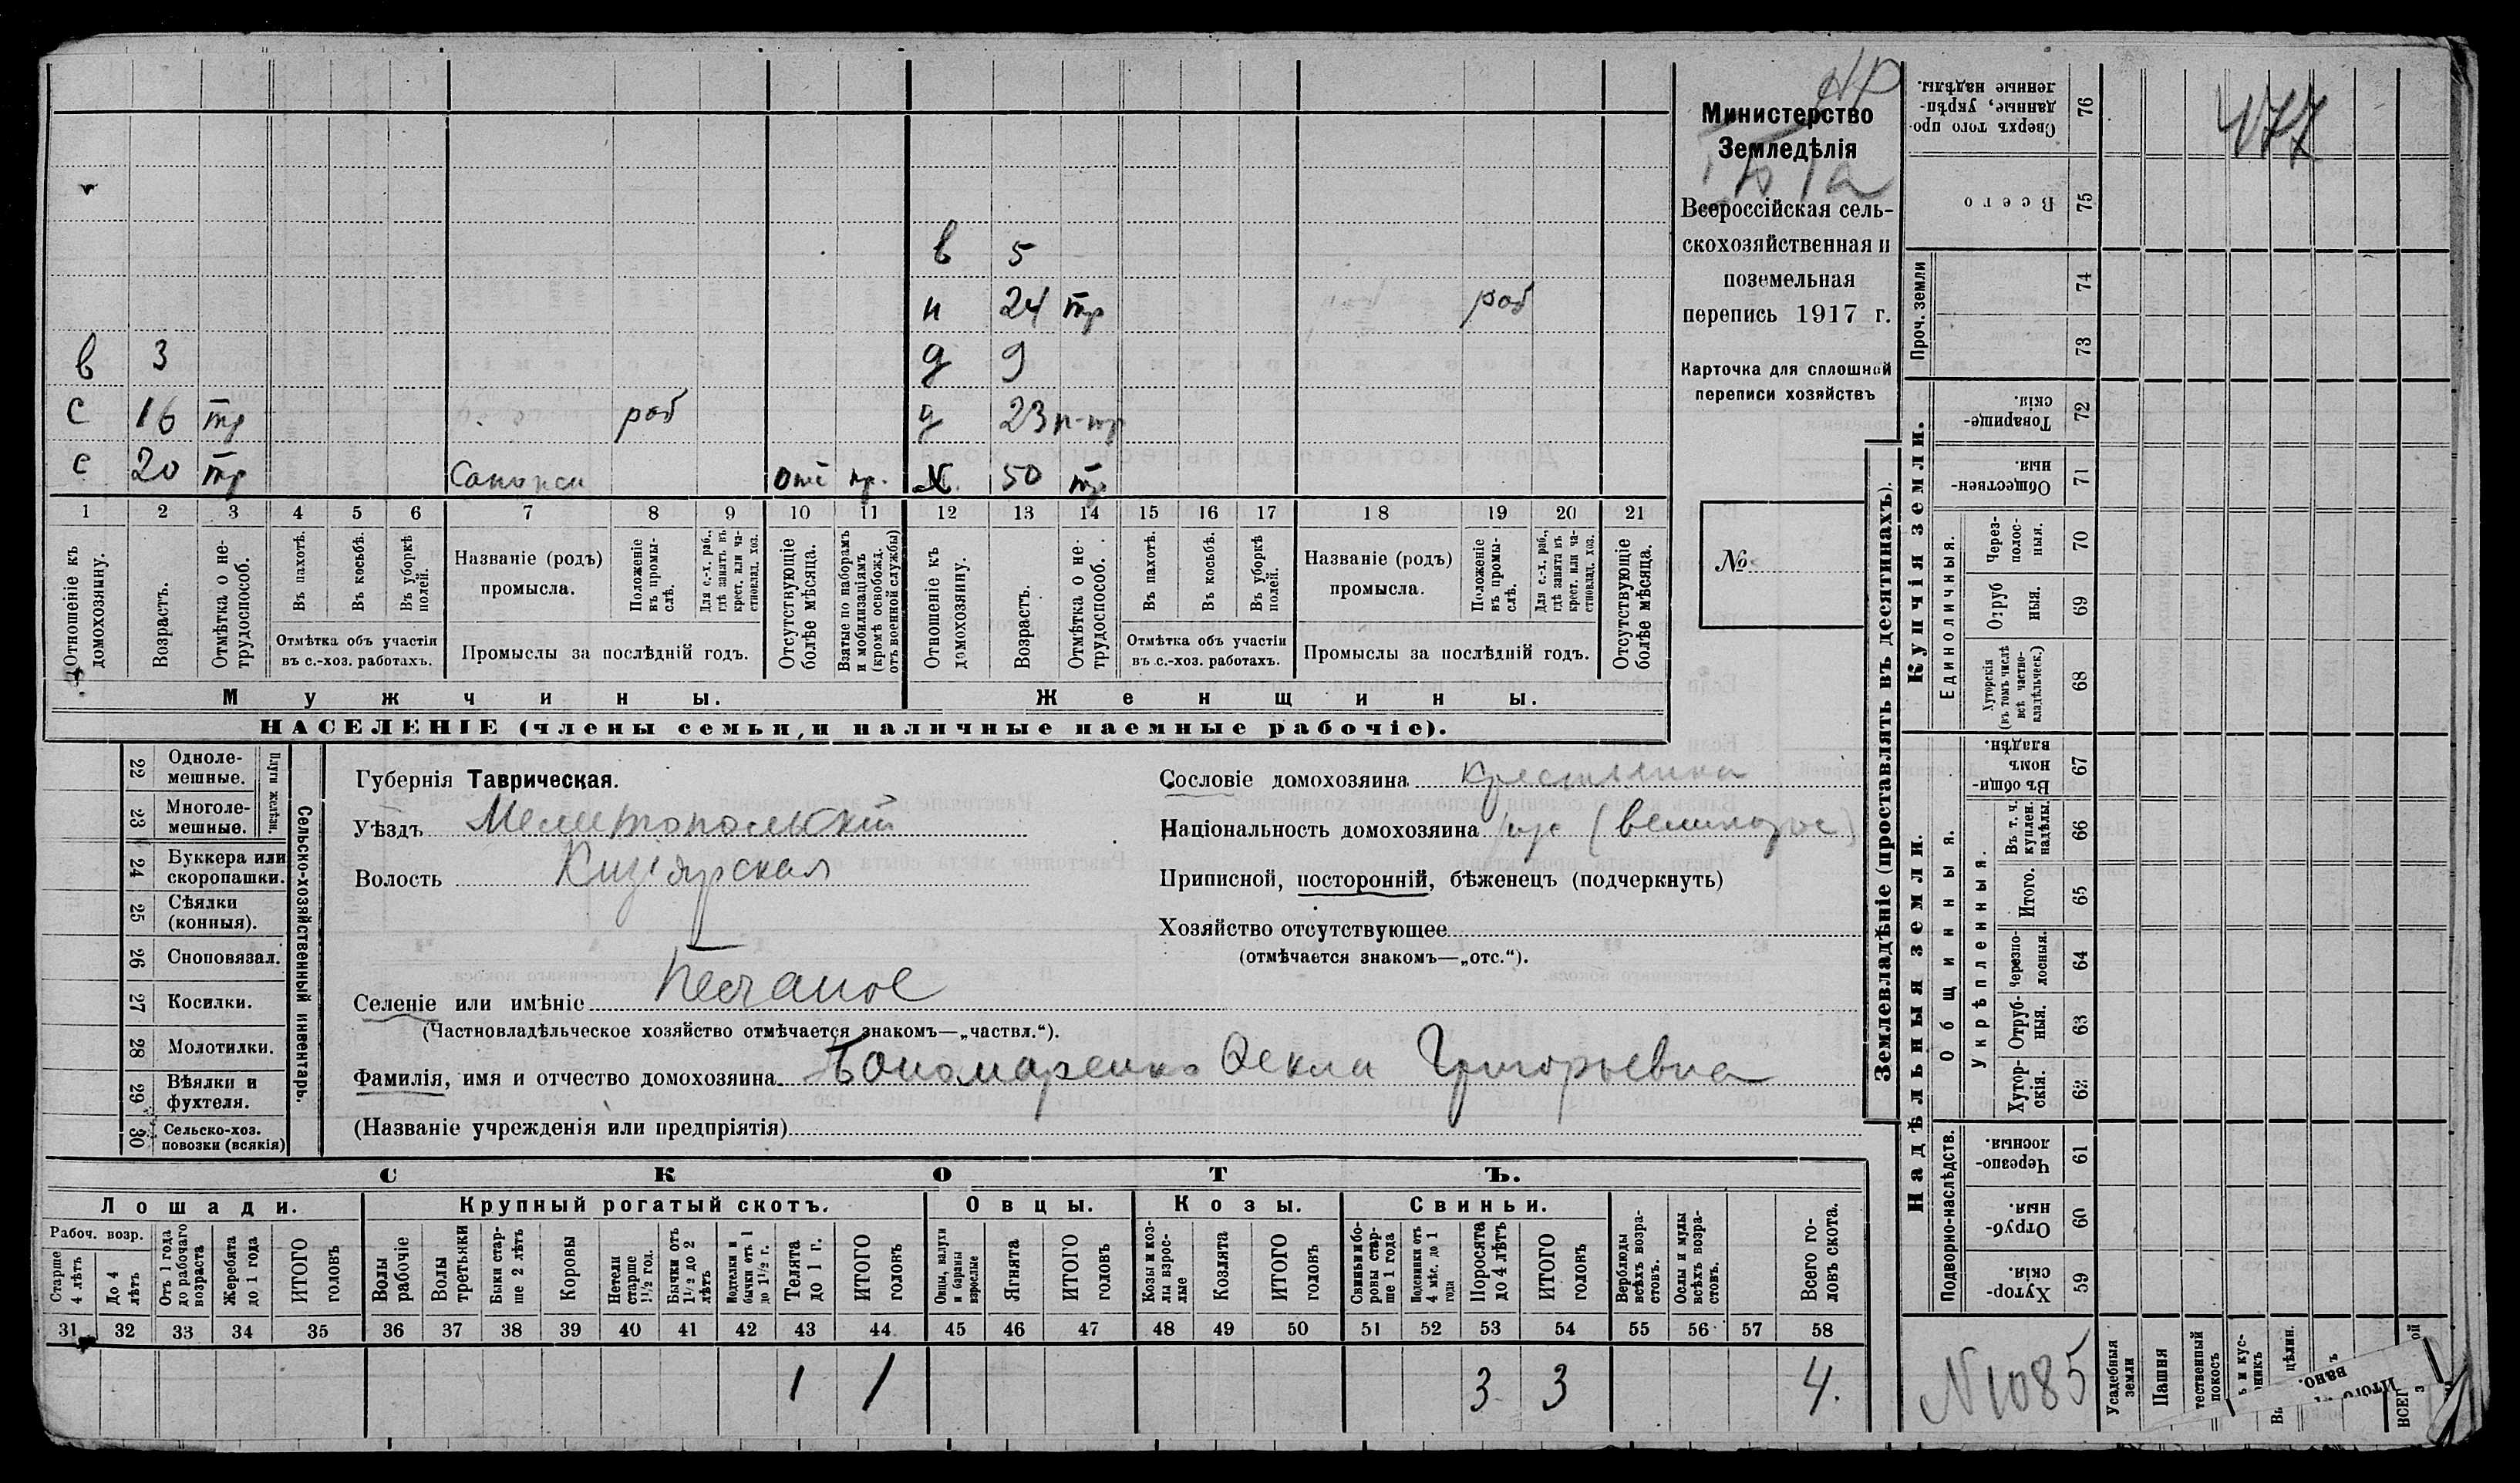 Министерство
Земледѣлія
Всероссійская сель-
скохозяйственная и
поземельная
перепись 1917 г.
Карточка для сплошной
переписи хозяйствъ
№
477
в 5
н 24 тр раб
в 3 д 9
с 16 тр раб д 23 н-тр
с 20 тр отс пр. х. 50 тр
1 2 3 4 5 6 7 8 9 10 11 12 13 14 15 16 17 18 19 20 21
Отношеніе къ домохозяину.
Возрастъ.
Отмѣтка о не-трудоспособ.
Въ пахотѣ.
Въ косьбѣ.
Въ уборкѣ полей.
Отмѣтка объ участіи
въ с.-хоз. работахъ.
Названіе (родъ)
промысла.
Положеніе въ промы-слѣ.
Для с.-х. раб., гдѣ занятъ въ крест. или ча-стновлад. хоз.
Промыслы за послѣдній годъ.
Отсутствующіе болѣе мѣсяца.
Взятые по наборамъ и мобилизаціямъ (кромѣ освобожд. отъ военной службы)
Отношеніе къ домохозяину.
Возрастъ.
Отмѣтка о не-трудоспособ.
Въ пахотѣ.
Въ косьбѣ.
Въ уборкѣ полей.
Отмѣтка объ участіи
въ с.-хоз. работахъ.
Названіе (родъ)
промысла.
Положеніе въ промы-слѣ.
Для с.-х. раб., гдѣ занятъ въ крест. или ча-стновлад. хоз.
Промыслы за послѣдній годъ.
Отсутствующіе болѣе мѣсяца.
Мужчины. Женщины.
НАСЕЛЕНІЕ (члены семьи, и наличные наемные рабочіе).
22 Одноле-мешные.
23 Многоле-мешные.
Плуги желѣзн.
24 Буккера или скоропашки.
25 Сѣялки (конныя).
26 Сноповязал.
27 Косилки.
28 Молотилки.
29 Вѣялки и фухтеля.
30 Сельско-хоз. повозки (всякія)
Сельско-хозяйственный инвентарь.
Губернія Таврическая.
Уѣздъ Мелитопольскій
Волость Кизіярская
Селеніе или имѣніе Песчаное
(Частновладѣльческое хозяйство отмѣчается знакомъ—„частвл.“).
Фамилія, имя и отчество домохозяина Пономаренко Фекла Григорьевна
(Названіе учрежденія или предпріятія)
Сословіе домохозяина Крестьянка
Національность домохозяина рус (великорос)
Приписной, посторонній, бѣженецъ (подчеркнуть)
Хозяйство отсутствующее
(отмѣчается знакомъ—„отс.“).
СКОТЪ.
Лошади. Крупный рогатый скотъ. Овцы. Козы. Свиньи.
Рабоч. возр.
Старше 4 лѣтъ
До 4 лѣтъ
Отъ 1 года до рабочаго возраста
Жеребята до 1 года
ИТОГО головъ
Волы рабочіе
Волы третьяки
Быки стар-ше 2 лѣтъ
Коровы
Нетели старше 1½ год.
Бычки отъ 1½ до 2 лѣтъ
Телки и бычки отъ 1 до 1½ г.
Телята до 1 г.
ИТОГО головъ
Овцы, валухи и бараны взрослые
Ягнята
ИТОГО головъ
Козы и коз-лы взрос-лые
Козлята
ИТОГО головъ
Свиньи и бо-ровы стар-ше 1 года
Подсвинки отъ 4 мѣс. до 1 года
Поросята до 4 лѣтъ
ИТОГО головъ
Верблюды всѣхъ возра-стовъ.
Ослы и мулы всѣхъ возра-стовъ.
Всего го-ловъ скота.
31 32 33 34 35 36 37 38 39 40 41 42 43 44 45 46 47 48 49 50 51 52 53 54 55 56 57 58
1 1 3 3 4.
Землевладѣніе (проставлять въ десятинахъ).
Сверхъ того про-данные, укрѣп-ленные надѣлы. 76
Всего 75
Проч. земли
74
73
Купчія земли.
Товарище-скія. 72
Обществен-ныя. 71
Единоличныя.
Через-полос-ныя. 70
Отруб ныя. 69
Хуторскія (въ томъ числѣ всѣ частно-владѣльческ.) 68
Надѣльныя земли.
Общинныя.
Въ общин-номъ владѣн. 67
Укрѣпленныя.
Въ т. ч. куплен. надѣлы. 66
Итого. 65
Черезпо-лосныя. 64
Отруб-ныя. 63
Хутор-скія. 62
Подворно-наслѣдств.
Черезпо-лосныя. 61
Отруб-ныя. 60
Хутор-скія. 59
N 1085
Усадебныя земли
Пашня
тественный покосъ
ь и кус-
цѣлин.
Итого
вано.
ВСЕГ